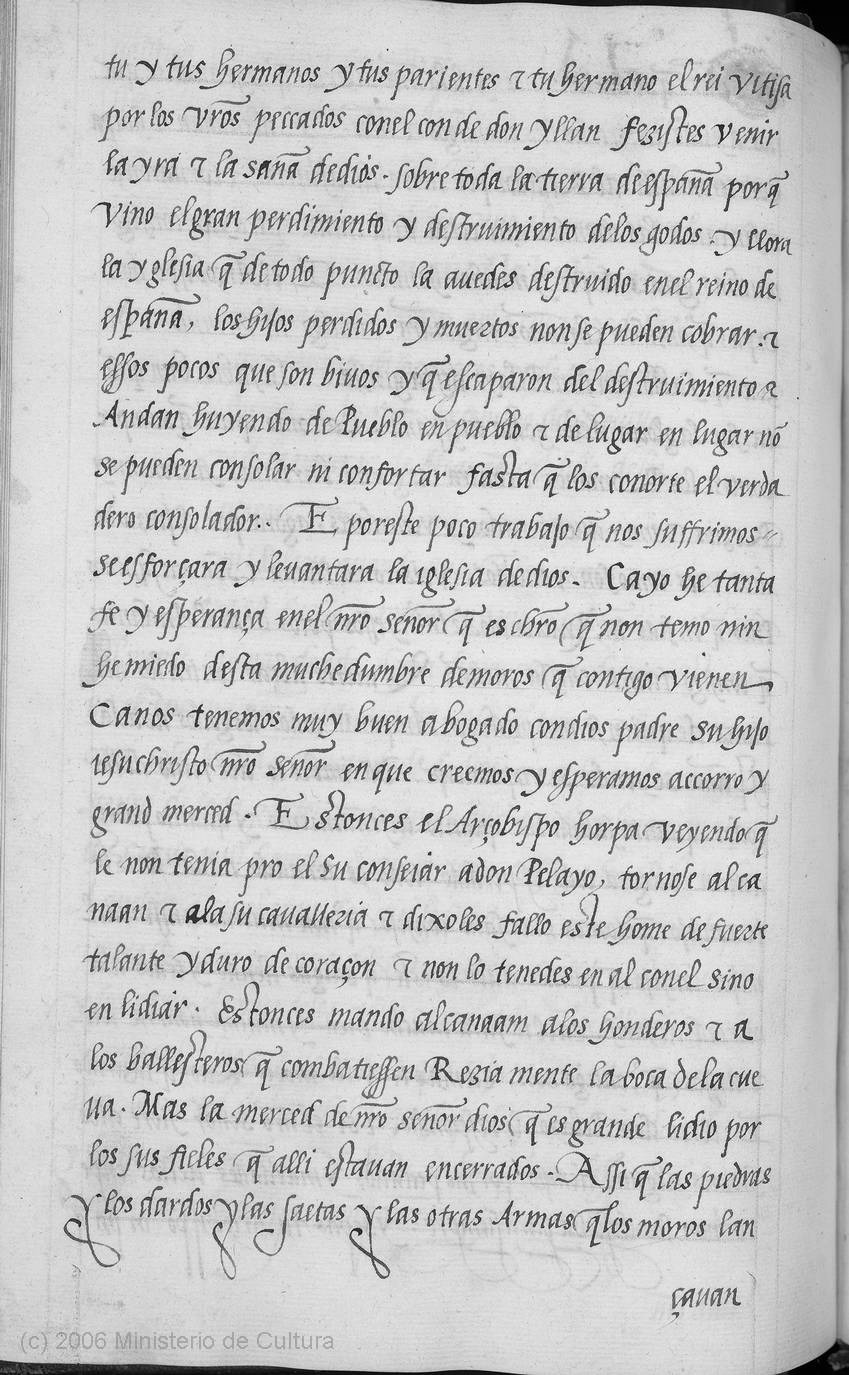 tu y tus hermanos y tus parientes ⁊ tu hermano el rei vitisa
por los vr̃os peccados conel conde don yllan fezistes venir
la yra ⁊ la saña dedios. sobre toda la tierra deespaña porq̃
vino elgran perdimiento y destruimiento delos godos. y llora
la yglesia q̃ de todo puncto la auedes destruido enel reino de
españa, los hijos perdidos y muertos non se pueden cobrar. ⁊
essos pocos que son biuos y q̃ escaparon del destruimiento ⁊
Andan huyendo de Pueblo en pueblo ⁊ de lugar en lugar nõ
se pueden consolar ni confortar fasta q̃ los conorte el verda
dero consolador. E poreste poco trabajo q̃ nos suffrimos
se esforçara y leuantara la iglesia dedios. Ca yo he tanta
fe y esperança enel nr̃o señor q̃ es chr̃o q̃ non temo nin
he miedo desta muchedumbre demoros q̃ contigo vienen
Ca nos tenemos muy buen abogado con dios padre su hijo
iesuchristo nr̃o señor en que creemos y esperamos accorro y
grand merced. Estonces el Arçobispo horpa veyendo q̃
le non tenia pro el su conseiar adon Pelayo, tornose alca
naan ⁊ ala su cavalleria ⁊ dixoles fallo este home de fuerte
talante y duro de coraçon ⁊ non lo tenedes en al conel sino
en lidiar. Estonces mando alcanaam alos honderos ⁊ a
los ballesteros q̃ combatiessen Rezia mente la boca dela cue
ua. Mas la merced de nr̃o señor dios q̃ es grande lidio por
los sus fieles q̃ alli estauan encerrados. Assi q̃ las piedras
y los dardos y las saetas y las otras Armas q̃ los moros lan
çauan
(c) 2006 Ministerio de Cultura